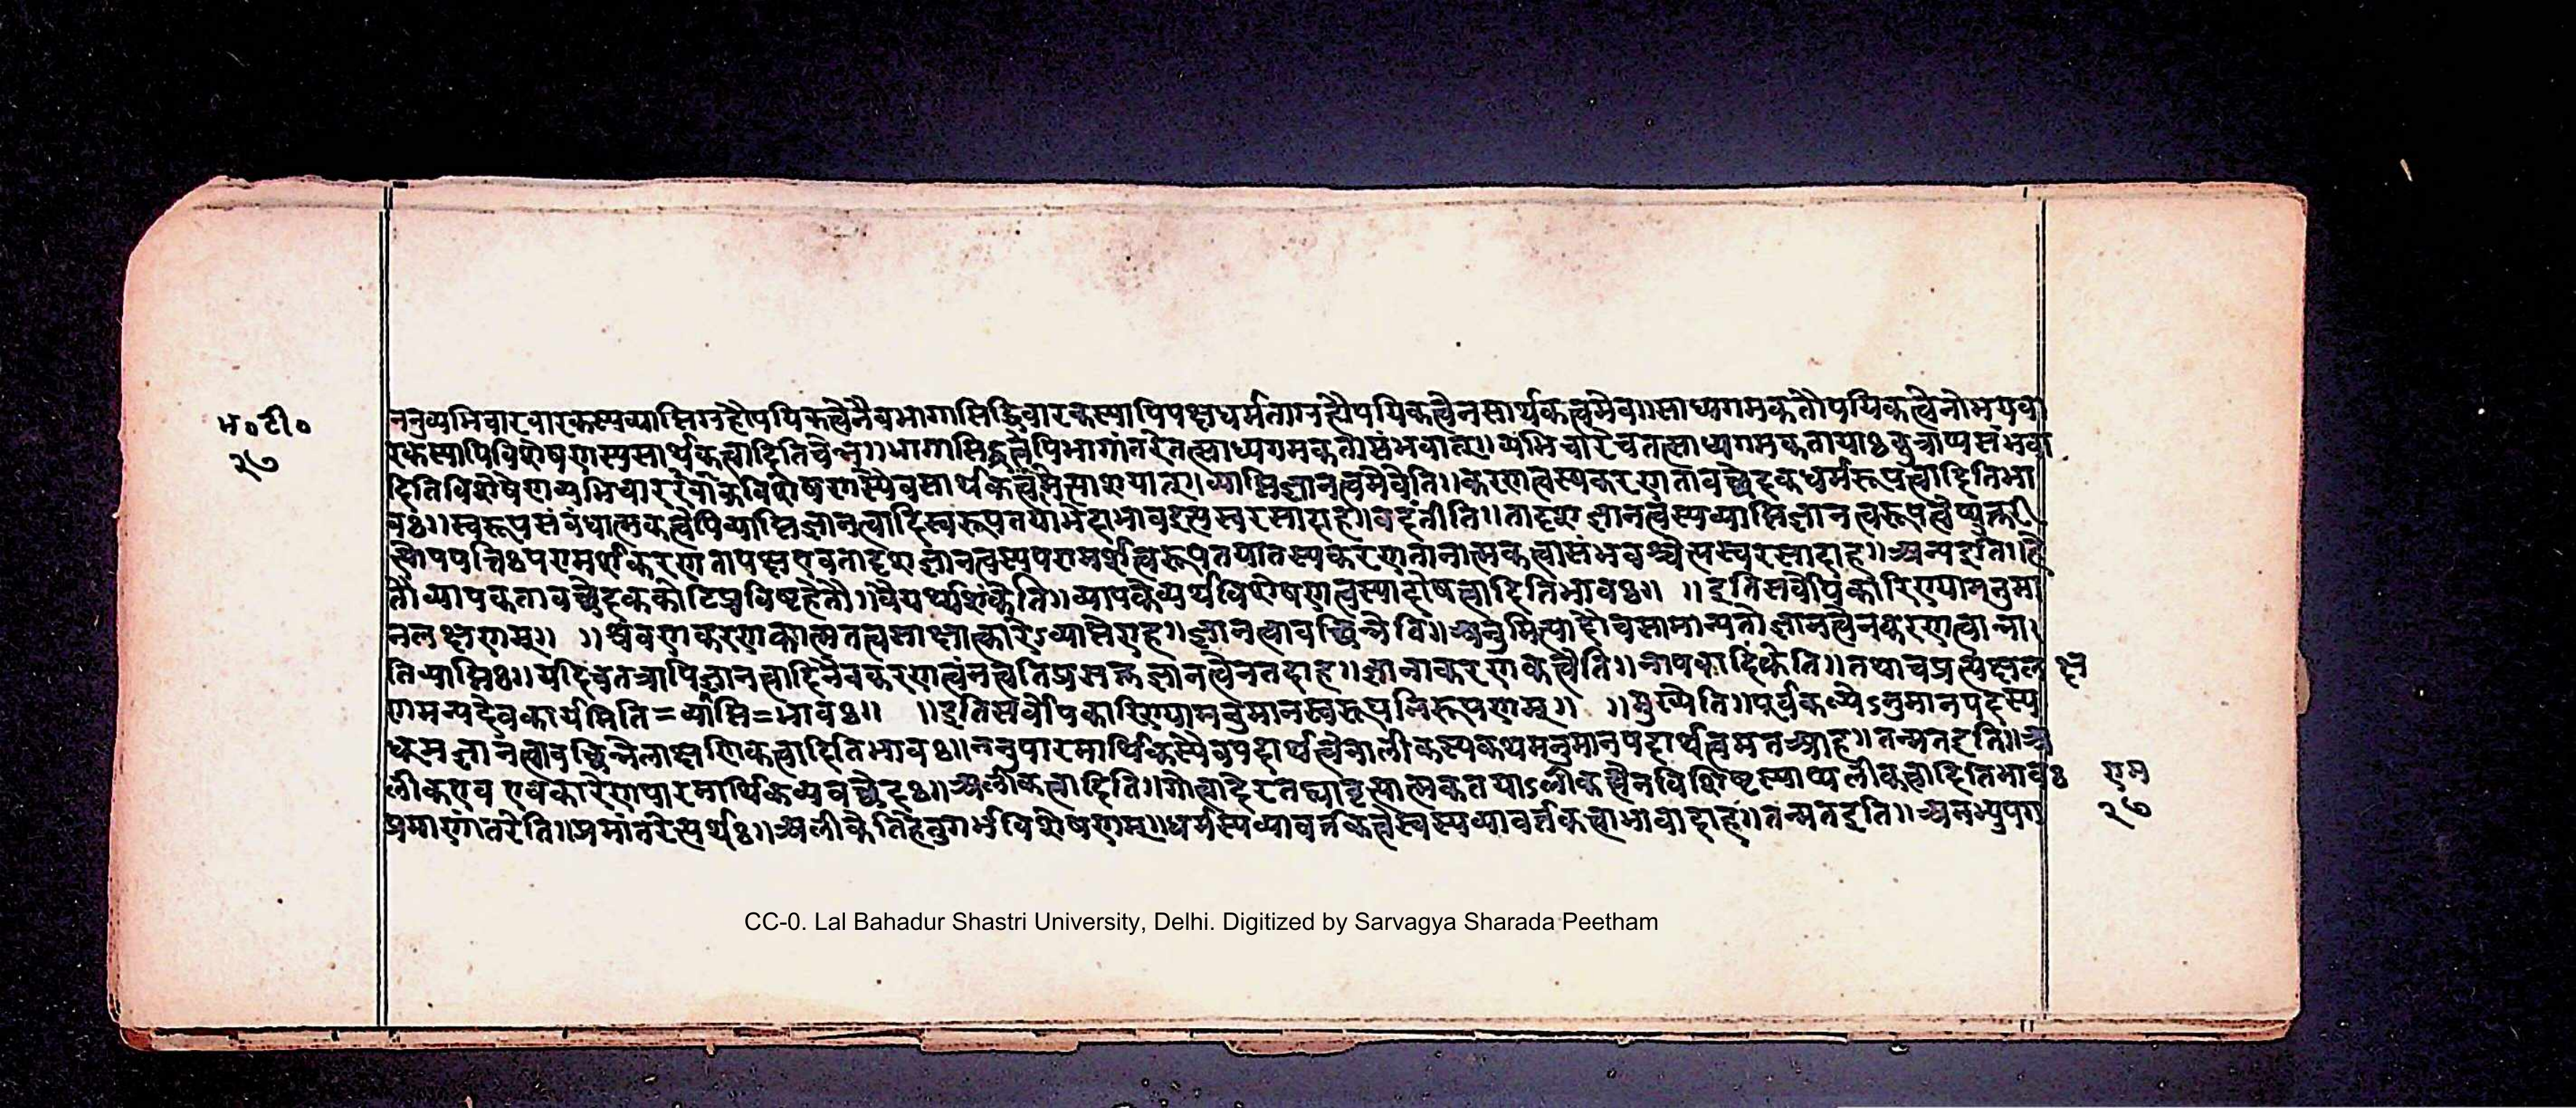 भ॰टी॰
२७
ननुव्यभिचारवारकस्यव्याप्तिग्रहौपयिकत्वेनैवभागासिद्धिवारकस्यापिपक्षधर्मताग्रहौपयिकत्वेनसार्थकत्वमेव॥साध्यगमकतौपयिकत्वेनोभयवा
रकस्यापिविशेषणस्यसार्थकत्वादितिचेन्न॥भागासिद्धत्वेपिभागांतरेतत्साध्यगमकतासंभवात्॥व्यभिचारेचतत्साध्यगमकतायाःकुत्राप्यसंभवा
दितिविशेषणव्यभिचारवारकविशेषणस्यैवसार्थकत्वमित्याशयात्॥व्याप्तिज्ञानत्वमेवेति॥करणत्वस्यकरणतावच्छेदकधर्मरूपत्वादितिभा
वः॥स्वरूपसंबंधात्मकत्वेपिव्याप्तिज्ञानत्वादिस्वरूपतयाभेदाभावइत्यस्वरसादाह॥वदंतीति॥तादृशज्ञानत्वस्यव्याप्तिज्ञानत्वरूपत्वेप्युक्तरी
त्योपपत्तिःपरामर्शकरणतापक्षएवतादृशज्ञानत्वस्यपरामर्शत्वरूपतयातस्यकरणतानात्मकत्वासंभवश्चेत्यस्वरसादाह॥अन्यइति॥हे
तौव्यापकतावच्छेदककोटिप्रविष्टहेतौ॥वैयर्थ्यशंकेति॥व्यापकेव्यर्थविशेषणत्वस्यादोषत्वादितिभावः॥ ॥इतिसर्वोपकारिण्यामनुमा
नलक्षणम्॥ ॥श्रवणकरणकात्मतत्वसाक्षात्कारेऽव्याप्तेराह॥ज्ञानत्वावच्छिन्नेति॥अनुमित्यादौचसामान्यतोज्ञानत्वेनकरणत्वान्ना
तिव्याप्तिः॥यदिचतत्रापिज्ञानत्वादिनैवकरणत्वंनत्वेतिप्रसक्तज्ञानत्वेनतदाह॥ज्ञानाकरणकत्वेति॥ज्ञापकादिकेति॥तथाचप्रत्यक्षल क्ष
णमन्यदेवकार्यमिति=व्याप्ति=भावः॥ ॥इतिसर्वोपकारिण्यामनुमानस्वरूपनिरूपणम्॥ ॥मुख्येति॥पूर्वकल्पेऽनुमानपदस्य
धूमज्ञानत्वावच्छिन्नेलाक्षणिकत्वादितिभावः॥ननुपारमार्थिकस्यैवपदार्थत्वेनालीकस्यकथमनुमानपदार्थत्वमतआह॥तन्मतइति॥अ
लीकएव एवकारेणपारमार्थिकव्यवच्छेदः॥अलीकत्वादिति॥गोत्वादेरतद्व्यावृत्यात्मकतयाऽलीकत्वेनविशिष्टस्याप्यलीकत्वादितिभावः
प्रमाणांतरेति॥प्रमांतरेत्यर्थः॥अलीकेतिहेतुगर्भविशेषणम्॥धर्मस्यव्यावर्तकत्वेस्वस्यव्यावर्तकत्वाभावादाह॥तन्मतइति॥अनभ्युपग
राम
२७
CC-0. Lal Bahadur Shastri University, Delhi. Digitized by Sarvagya Sharada Peetham